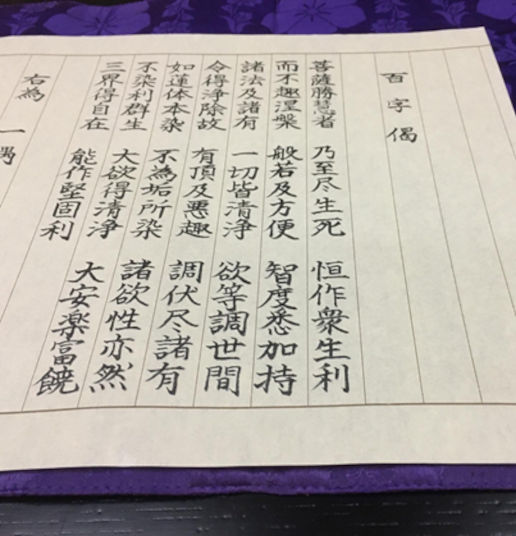 百字偈
菩薩勝慧者 乃至尽生死 恒作衆生利
而不趣涅槃 般若及方便 智度悉加持
諸法及諸有 一切皆清浄 欲等調世間
令得浄除故 有頂及悪趣 調伏尽諸有
如蓮体本染 不為垢所染 諸欲性亦然
不染利群生 大欲得清浄 大安楽富饒
三界得自在 能作堅固利
右為 一